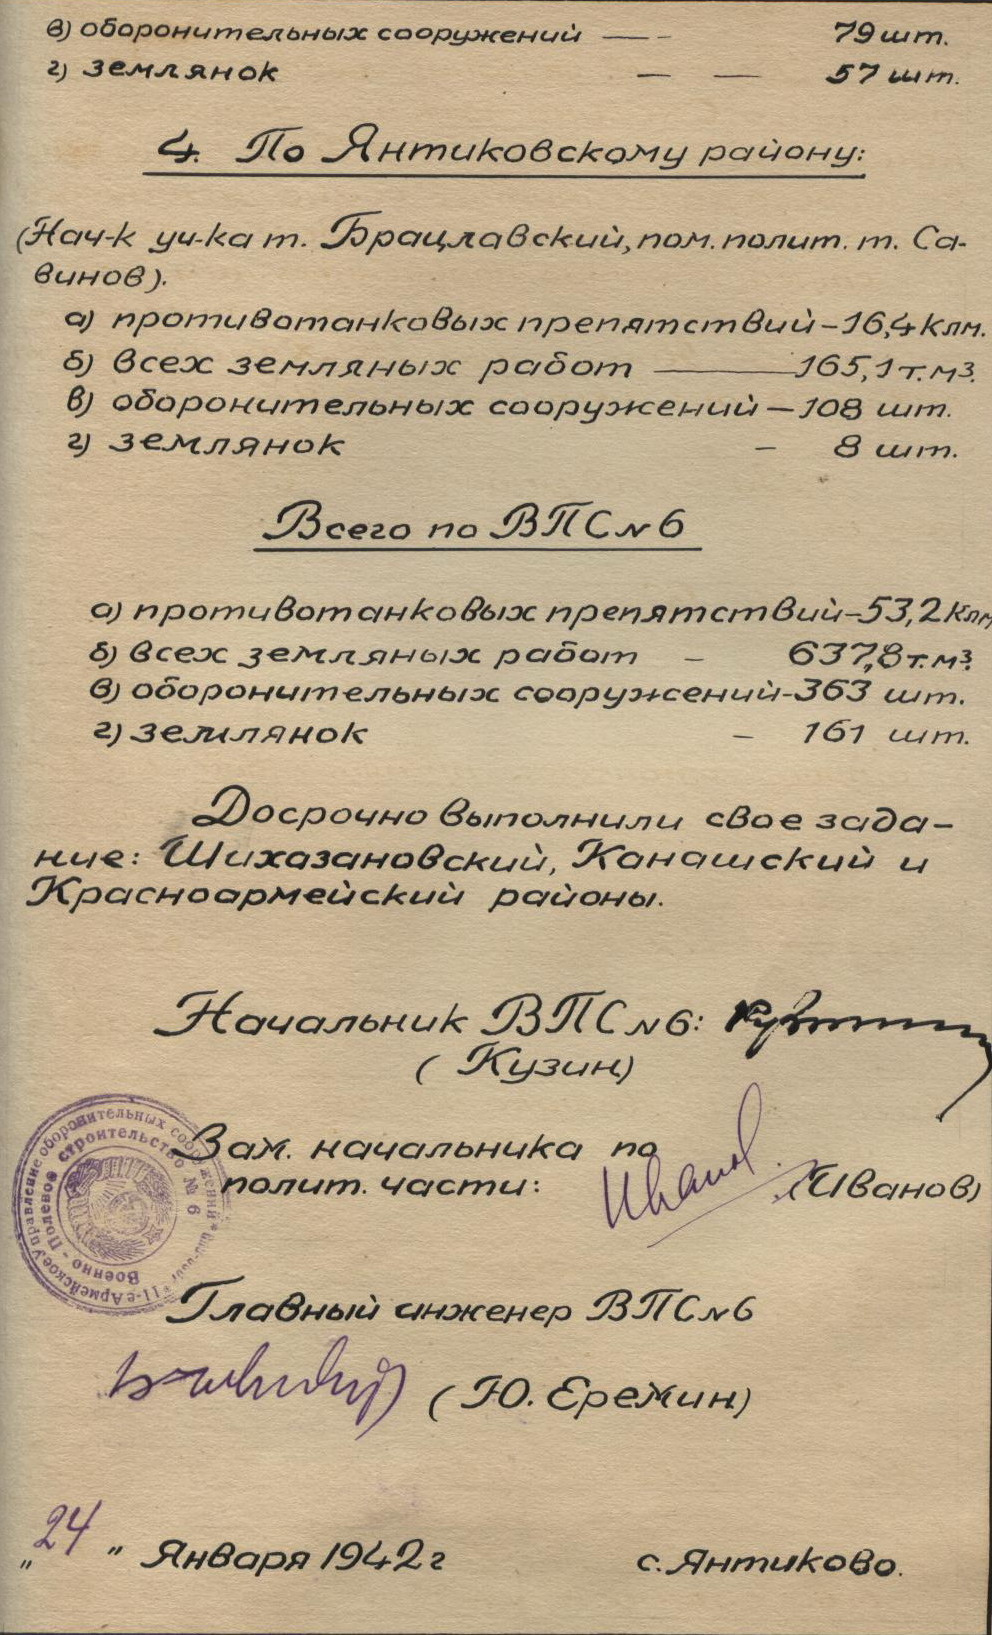 в) оборонительных сооружений — - 79 шт.
г) землянок — — 57 шт.
4. По Янтиковскому району:
(Нач-к уч-ка т. Брацлавский, пом. полит. т. Са-
винов).
а) противотанковых препятствий – 16,4 клм.
б) всех земляных работ — 165,1 т.м³.
в) оборонительных сооружений – 108 шт.
г) землянок – 8 шт.
Всего по ВПС №6
а) противотанковых препятствий – 53,2 клм
б) всех земляных работ – 637,8 т.м³.
в) оборонительных сооружений - 363 шт.
г) землянок – 161 шт.
Досрочно выполнили свое зада-
ние: Шихазановский, Канашский и
Красноармейский районы.
Начальник ВПС №6:
(Кузин)
Зам. начальника по
полит. части: Иванов (Иванов)
11-е Армейское управление оборонительных сооружений
Военно-Полевое строительство № 6
Главный инженер ВПС №6
(Ю. Еремин)
„24" Января 1942 г с. Янтиково.